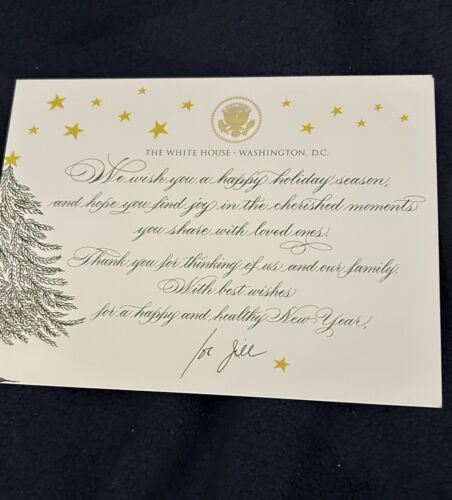 THE WHITE HOUSE · WASHINGTON, D.C.
We wish you a happy holiday season,
and hope you find joy in the cherished moments
you share with loved ones.
Thank you for thinking of us and our family.
With best wishes
for a happy and healthy New Year,
Joe Jill